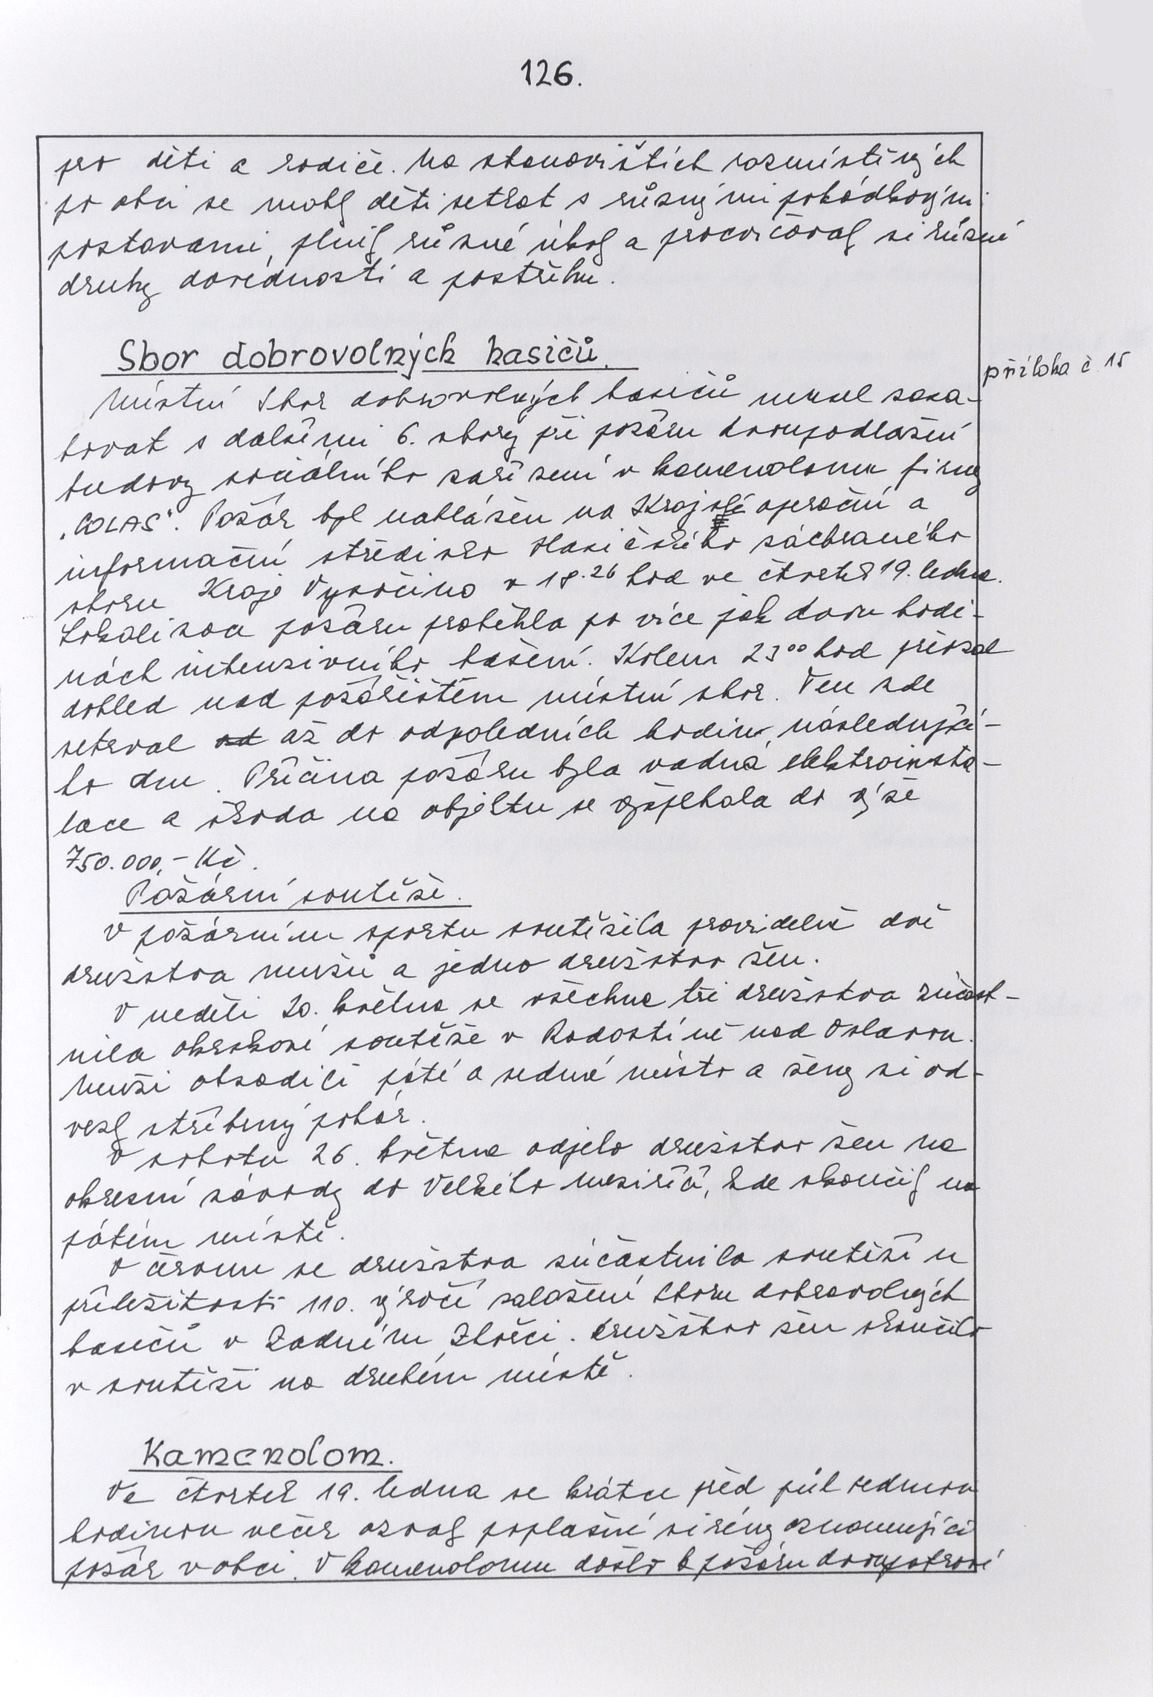 126.
pro děti a rodiče. Na stanovištích rozmístěných
po obci se mohly děti setkat s různými pohádkovými
postavami, plnily různé úkoly a procvičovaly si různé
druhy dovedností a postřehu.
Sbor dobrovolných hasičů.
příloha č. 15
Místní Sbor dobrovolných hasičů musel zasa-
hovat s dalšími 6. sbory při požáru dvoupodlažní
budovy sociálního zařízení v kamenolomu firmy
"COLAS". Požár byl nahlášen na Krajské operační a
informační středisko Hasičského záchraného
sboru Kraje Vysočina v 18.26 hod ve čtvrtek 19. ledna.
Lokalizace požáru proběhla po více jak dvou hodi-
nách intenzivního hašení. Kolem 23 00 hod převzal
dohled nad požářištěm místní sbor. Ten zde
setrval až do odpoledních hodin následující-
ho dne. Příčina požáru byla vadná elektroinsta-
lace a škoda na objektu se vyšplhala do výše
750.000,- Kč.
Požární soutěže.
V požárním sportu soutěžila pravidelně dvě
družstva mužů a jedno družstvo žen.
V neděli 20. května se všechna tři družstva zúčast-
nila okrskové soutěže v Radostíně nad Oslavou.
Muži obsadili páté a sedmé místo a ženy si od-
vezly stříbrný pohár.
V sobotu 26. května odjelo družstvo žen na
okresní závody do Velkého Meziříčí, kde skončily na
pátém místě.
V červnu se družstva zúčastnila soutěží u
příležitosti 110. výročí založení Sboru dobrovolných
hasičů v Zadním Zhořci. Družstvo žen skončilo
v soutěži na druhém místě.
Kamenolom.
Ve čtvrtek 19. ledna se krátce před půl sedmou
hodinou večer ozvaly poplašné sirény oznamující
požár v obci. V kamenolomu došlo k požáru dvoupatrové